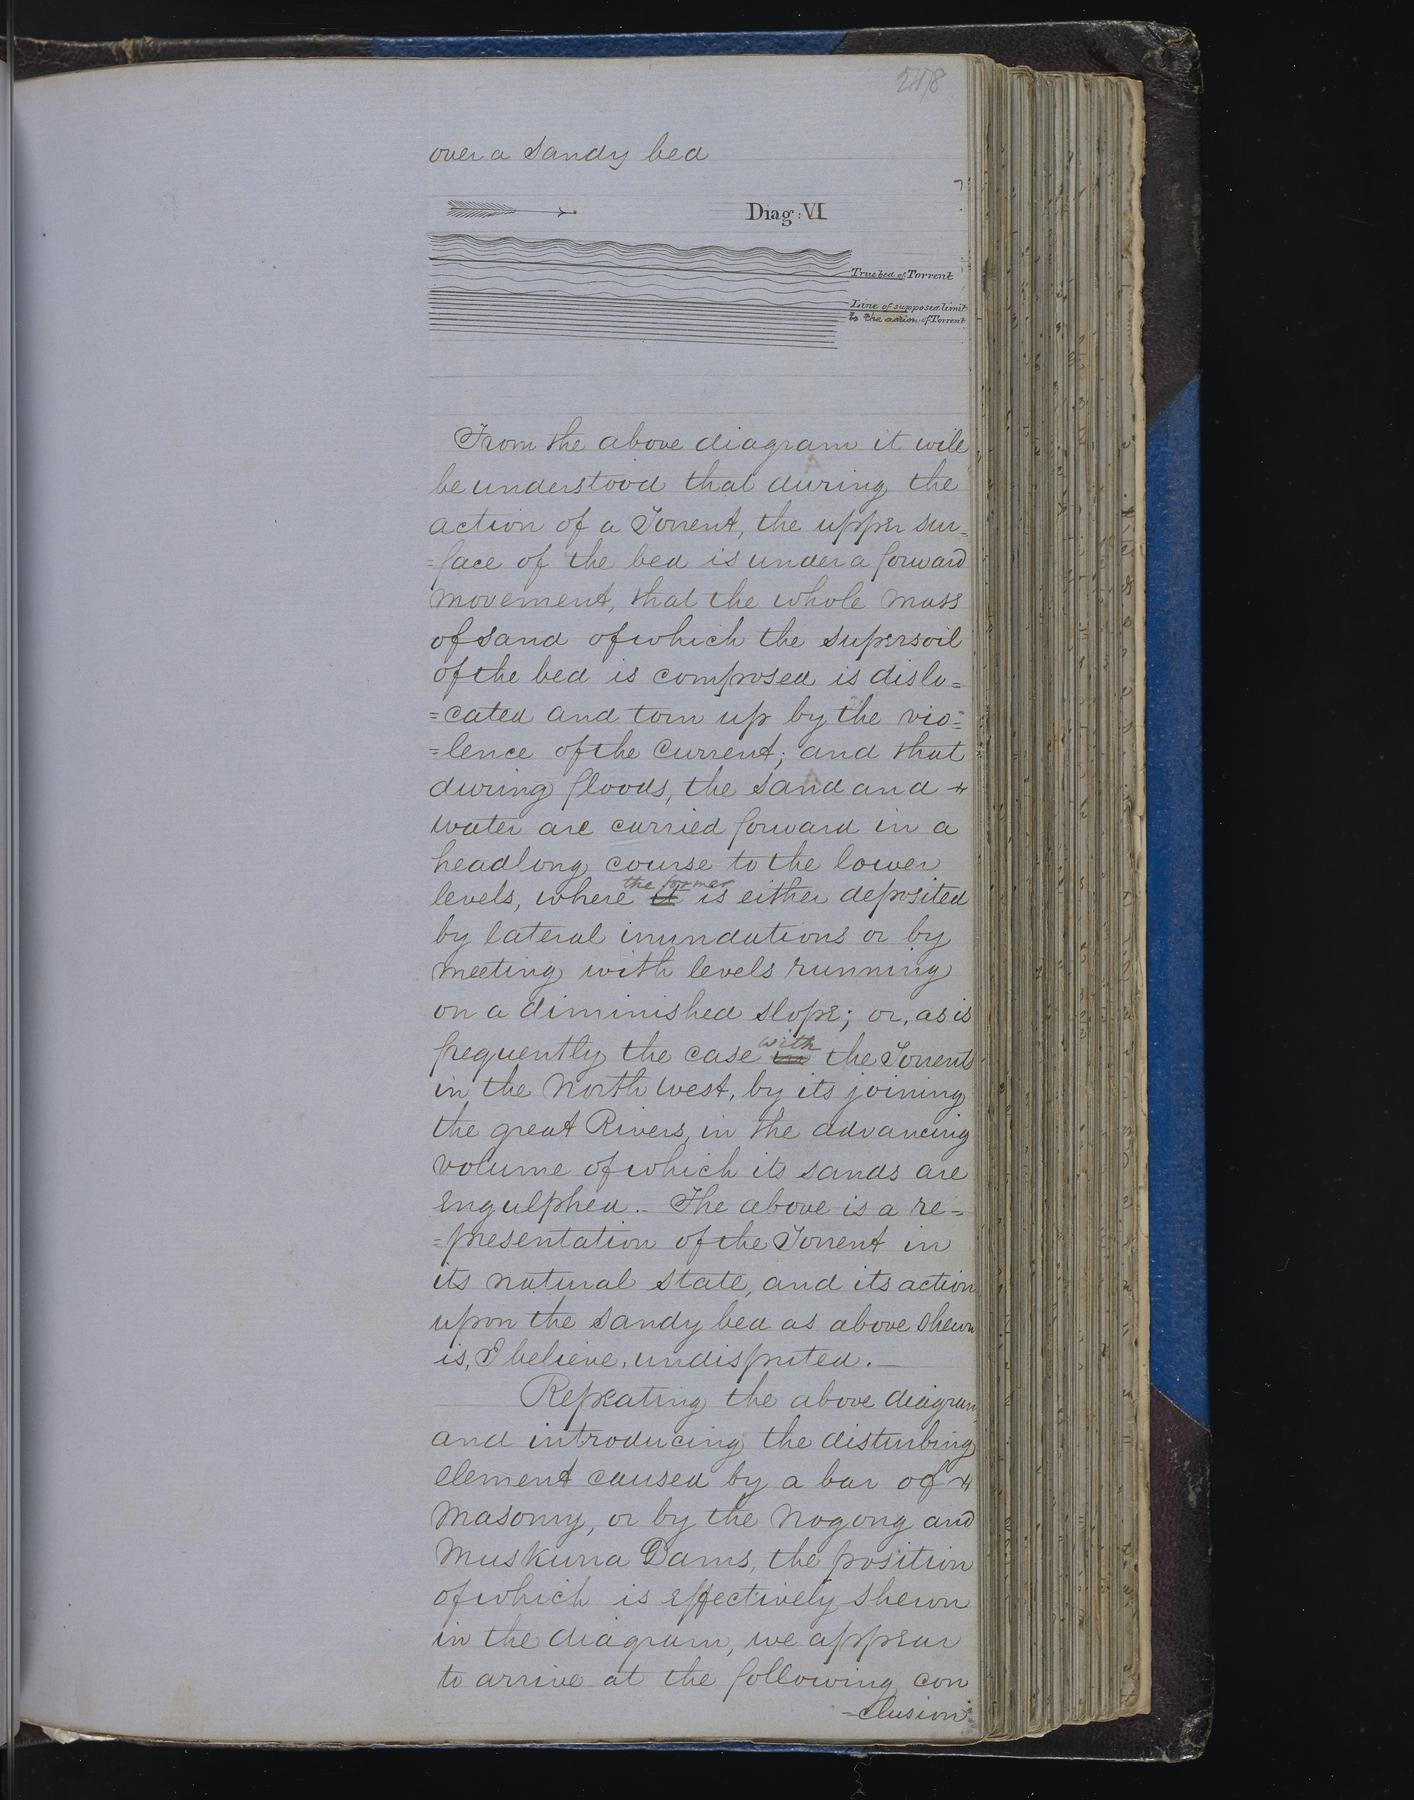 over a sandy bed
Diag: VI
True bed of Torrent
Line of supposed limit
to the action of Torrent
From the above diagram it will
be understood that during the
action of a Torrent, the upper sur=
=face of the bed is under a forward
movement, that the whole mass
of sand of which the supersoil
of the bed is composed is dislo=
=cated and torn up by the vio=
=lence of the current; and that
during floods, the sand and
water are carried forward in a
headlong course to the lower
levels, where the former it is either deposited
by lateral inundations or by
meeting with levels running
on a diminished slope; or, as is
frequently the case with in the Torrents
in the North West, by its joining
the great Rivers, in the advancing
volume of which its sands are
engulphed. – The above is a re=
=presentation of the Torrent in
its natural state, and its action
upon the sandy bed as above shewn
is, I believe, undisputed. —
Repeating the above diagram,
and introducing the disturbing
element caused by a bar of
Masonry, or by the Nogong and
Muskurra Dams, the position
of which is effectively shewn
in the diagram, we appear
to arrive at the following con
=clusion: